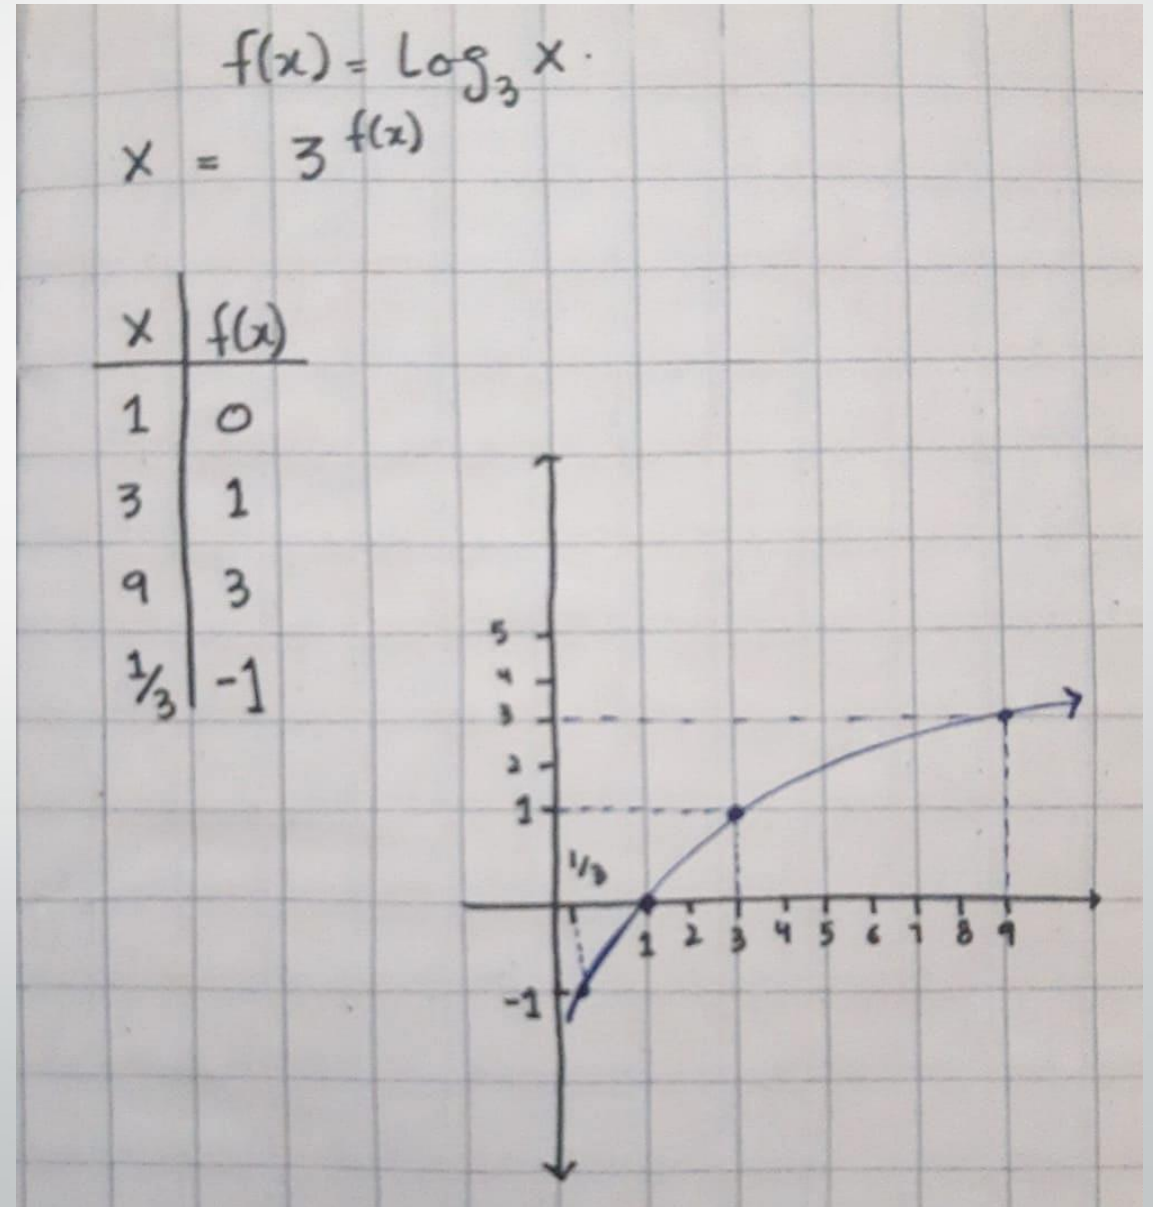 f(x) = Log₃ x.
x = 3^f(x)
x f(x)
1 0
3 1
9 3
1/3 -1
5
4
3
2
1
1/3
1 2 3 4 5 6 7 8 9
-1